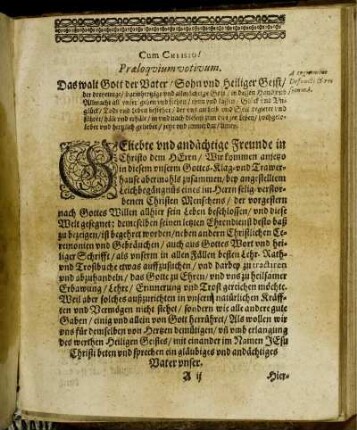 Cum CHRISTO!
Præloqvium votivum.
Das walt Gott der Vater / Sohn vnd Heiliger Geist /
der dreyeinige / barmhertzige vnd allmächtige Gott / in dessen Händen vnd
Allmacht all vnser
Leben vnd herrlich
GEliebte vnd andächtige Freunde in
Christo dem HErrn / Wir kommen anjetzo
in diesem vnserm Gottes- Klag- vnd Trawer-
Hause abermahls zusammen / bey angestelltem
Leichbegängnüs eines im Herrn selig-verstor-
benen Christen Menschens / der vorgestern
nach Gottes Willen allhier sein Leben beschlossen / vnd diese
Welt gesegnet: demselben seinen letzten Ehrendienst desto baß
zu bezeigen / ist begehret worden / neben andern Christlichen Ce-
remonien vnd Gebräuchen / auch aus Gottes Wort vnd hei-
liger Schrifft / als vnserm in allen Fällen besten Lehr- Rath-
vnd Trostbuche etwas auffzusuchen / vnd darbey zu tractiren
vnd abzuhandeln / das Gott zu Ehren / vnd vns zu heilsamer
Erbawung / Lehre / Erinnerung vnd Trost gereichen möchte.
Weil aber solches auszurichten in vnsern natürlichen Kräff-
ten vnd Vermögen nicht stehet / sondern wie alle andere gute
Gaben / einig vnd allein von Gott herrühret / Als wollen wir
vns für demselben von Hertzen demütigen / vñ vmb erlangung
des werthen Heiligen Geistes / mit einander im Namen JEsu
Christi beten vnd sprechen ein gläubiges vnd andächtiges
Vater vnser.
A ij
Hier-